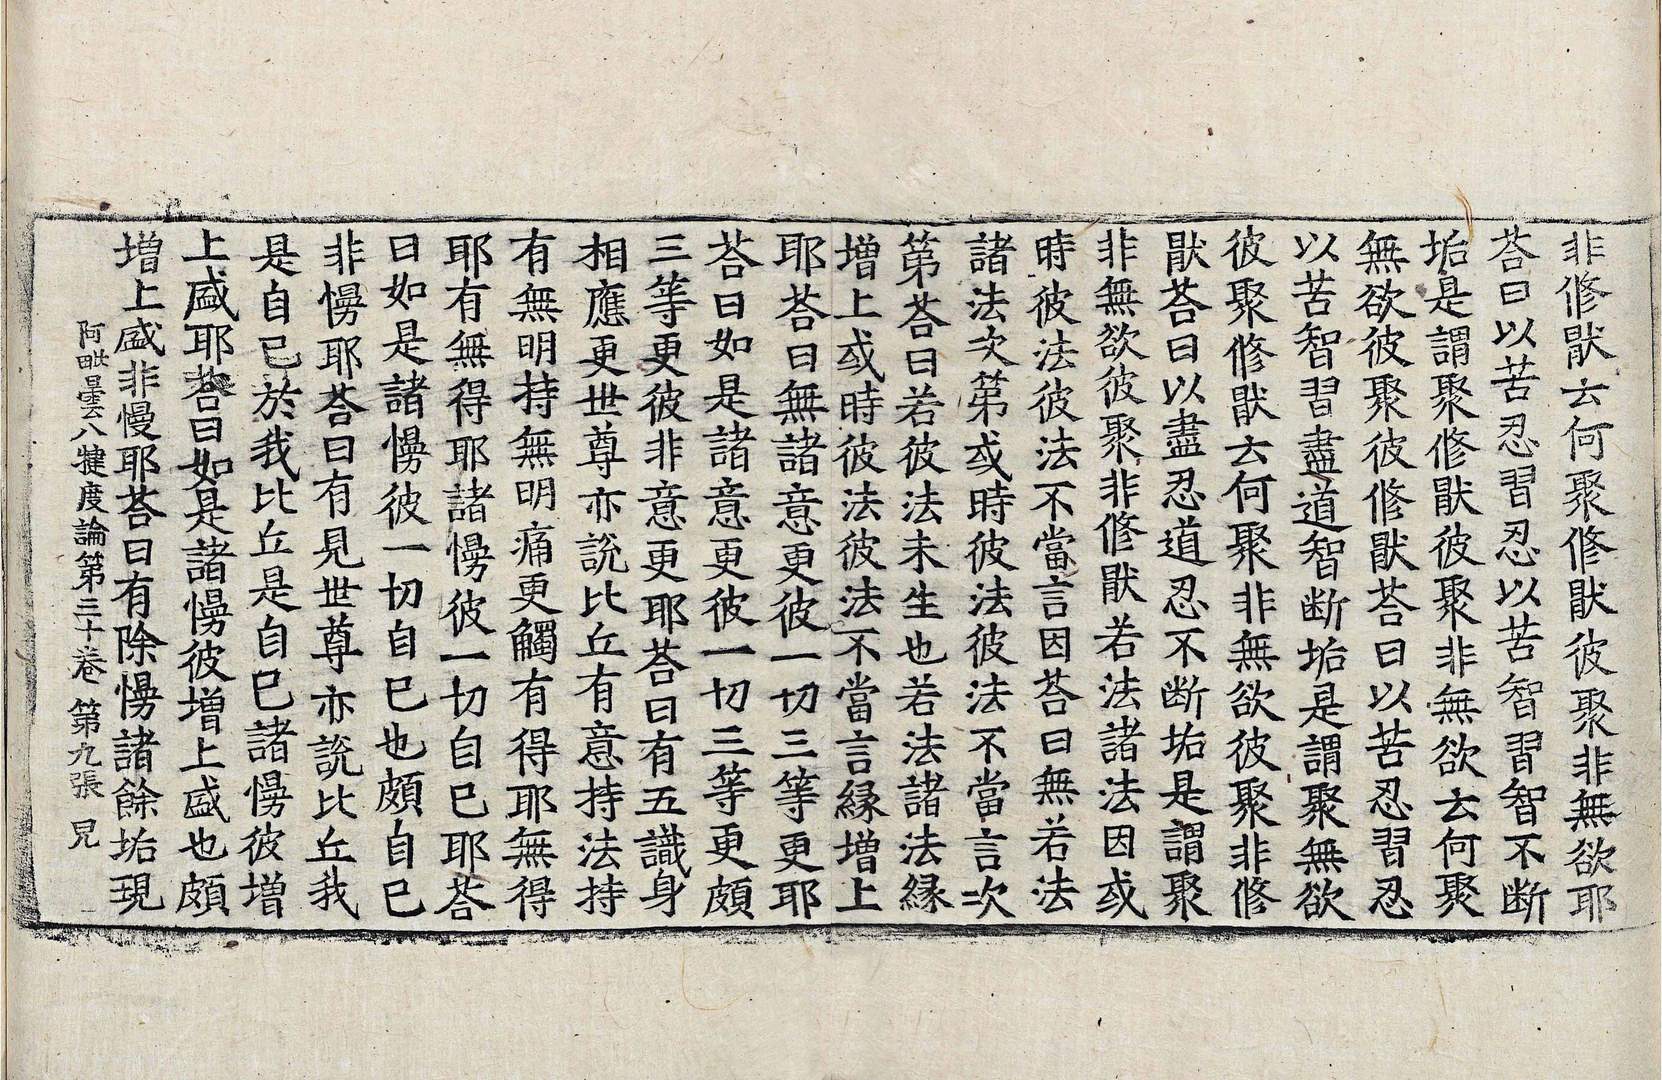 非修猒云何聚修猒彼聚非無欲耶
荅曰以苦忍習忍以苦智習智不断
垢是謂聚修猒彼聚非無欲云何聚
無欲彼聚彼修猒荅曰以苦忍習忍
以苦智習盡道智断垢是謂聚無欲
彼聚修猒云何聚非無欲彼聚非修
猒荅曰以盡忍道忍不断垢是謂聚
非無欲彼聚非修猒若法諸法因或
時彼法彼法不當言因荅曰無若法
諸法次第或時彼法彼法不當言次
第荅曰若彼法未生也若法諸法縁
增上或時彼法彼法不當言縁增上
耶荅曰無諸意更彼一切三等更耶
荅曰如是諸意更彼一切三等更頗
三等更彼非意更耶荅曰有五識身
相應更世尊亦說比丘有意持法持
有無明持無明痛更觸有得耶無得
耶有無得耶諸慢彼一切自已耶荅
曰如是諸慢彼一切自已也頗自已
非慢耶荅曰有見世尊亦說比丘我
是自已於我比丘是自已諸慢彼增
上盛耶荅曰如是諸慢彼增上盛也頗
增上盛非慢耶荅曰有除慢諸餘垢現
阿毗曇八犍度論第三十卷 第九張 兄